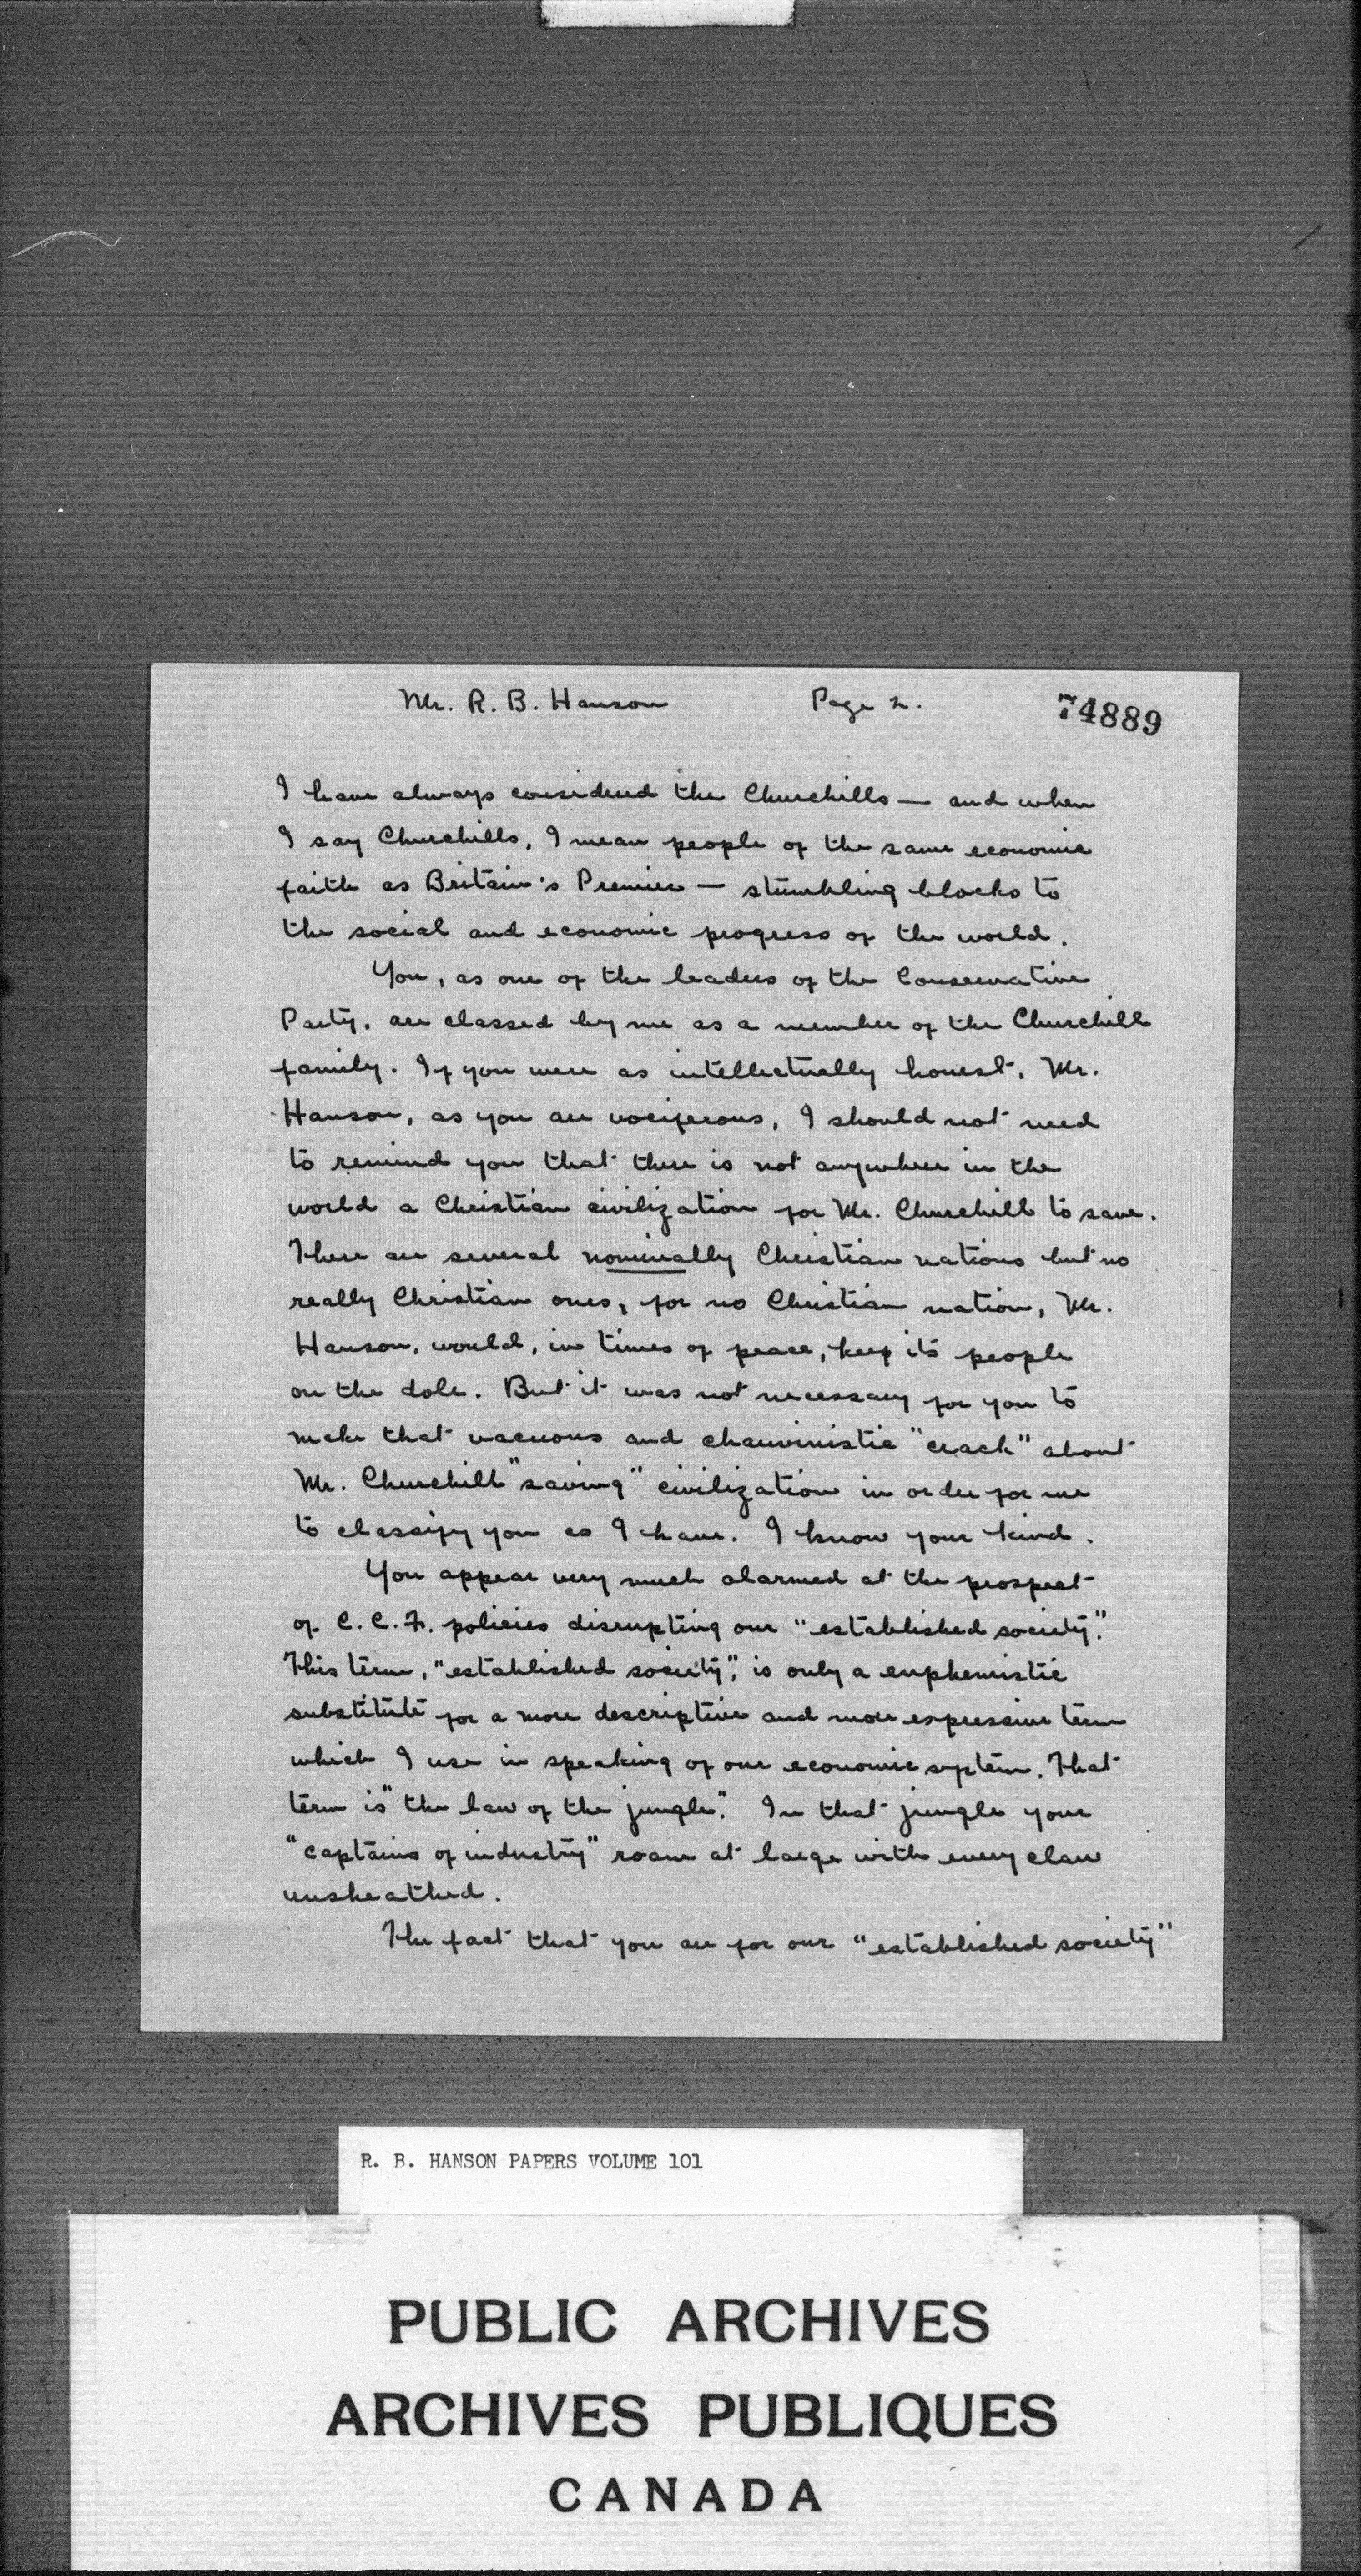 Mr. R. B. Hanson Page 2. 74889
I have always considered the Churchills — and when
I say Churchills, I mean people of the same economic
faith as Britain's Premier — stumbling blocks to
the social and economic progress of the world.
You, as one of the leaders of the Conservative
Party, are classed by me as a member of the Churchill
family. If you were as intellectually honest, Mr.
Hanson, as you are vociferous, I should not need
to remind you that there is not anywhere in the
world a Christian civilization for Mr. Churchill to save.
There are several nominally Christian nations but no
really Christian ones, for no Christian nation, Mr.
Hanson, would, in times of peace, keep its people
on the dole. But it was not necessary for you to
make that vacuous and chauvinistic "crack" about
Mr. Churchill "saving" civilization in order for me
to classify you as I have. I know your kind.
You appear very much alarmed at the prospect
of C. C. F. policies disrupting our "established society."
This term, "established society", is only a euphemistic
substitute for a more descriptive and more expressive term
which I use in speaking of our economic system. That
term is "the law of the jungle." In that jungle your
"captains of industry" roam at large with every claw
unsheathed.
The fact that you are for our "established society"
R. B. HANSON PAPERS VOLUME 101
PUBLIC ARCHIVES
ARCHIVES PUBLIQUES
CANADA